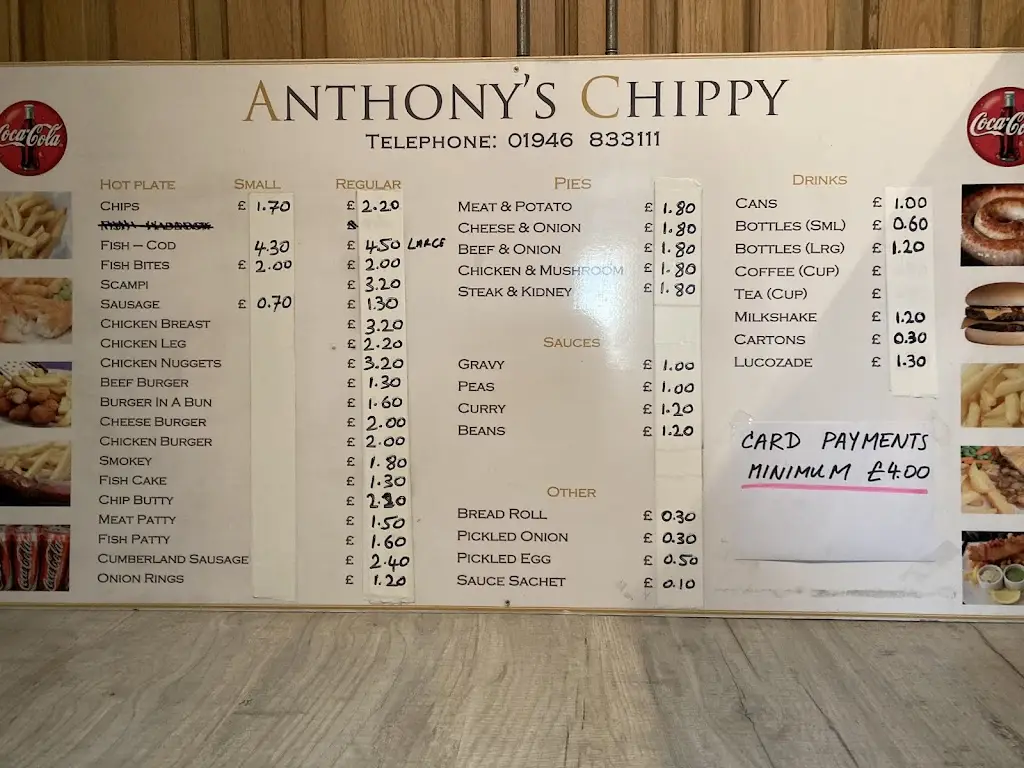 ANTHONY'S CHIPPY
TELEPHONE: 01946 833111
Coca-Cola
Coca-Cola
HOT PLATE SMALL REGULAR
CHIPS £ 1.70 £ 2.20
FISH – COD 4.30 £ 4.50 LARGE
FISH BITES £ 2.00 £ 2.00
SCAMPI £ 3.20
SAUSAGE £ 0.70 £ 1.30
CHICKEN BREAST £ 3.20
CHICKEN LEG £ 2.20
CHICKEN NUGGETS £ 3.20
BEEF BURGER £ 1.30
BURGER IN A BUN £ 1.60
CHEESE BURGER £ 2.00
CHICKEN BURGER £ 2.00
SMOKEY £ 1.80
FISH CAKE £ 1.30
CHIP BUTTY £
MEAT PATTY £ 1.50
FISH PATTY £ 1.60
CUMBERLAND SAUSAGE £ 2.40
ONION RINGS £ 1.20
PIES
MEAT & POTATO £ 1.80
CHEESE & ONION £ 1.80
BEEF & ONION £ 1.80
CHICKEN & MUSHROOM £ 1.80
STEAK & KIDNEY £ 1.80
SAUCES
GRAVY £ 1.00
PEAS £ 1.00
CURRY £ 1.20
BEANS £ 1.20
OTHER
BREAD ROLL £ 0.30
PICKLED ONION £ 0.30
PICKLED EGG £ 0.50
SAUCE SACHET £ 0.10
DRINKS
CANS £ 1.00
BOTTLES (SML) £ 0.60
BOTTLES (LRG) £ 1.20
COFFEE (CUP) £
TEA (CUP) £
MILKSHAKE £ 1.20
CARTONS £ 0.30
LUCOZADE £ 1.30
CARD PAYMENTS
MINIMUM £4.00